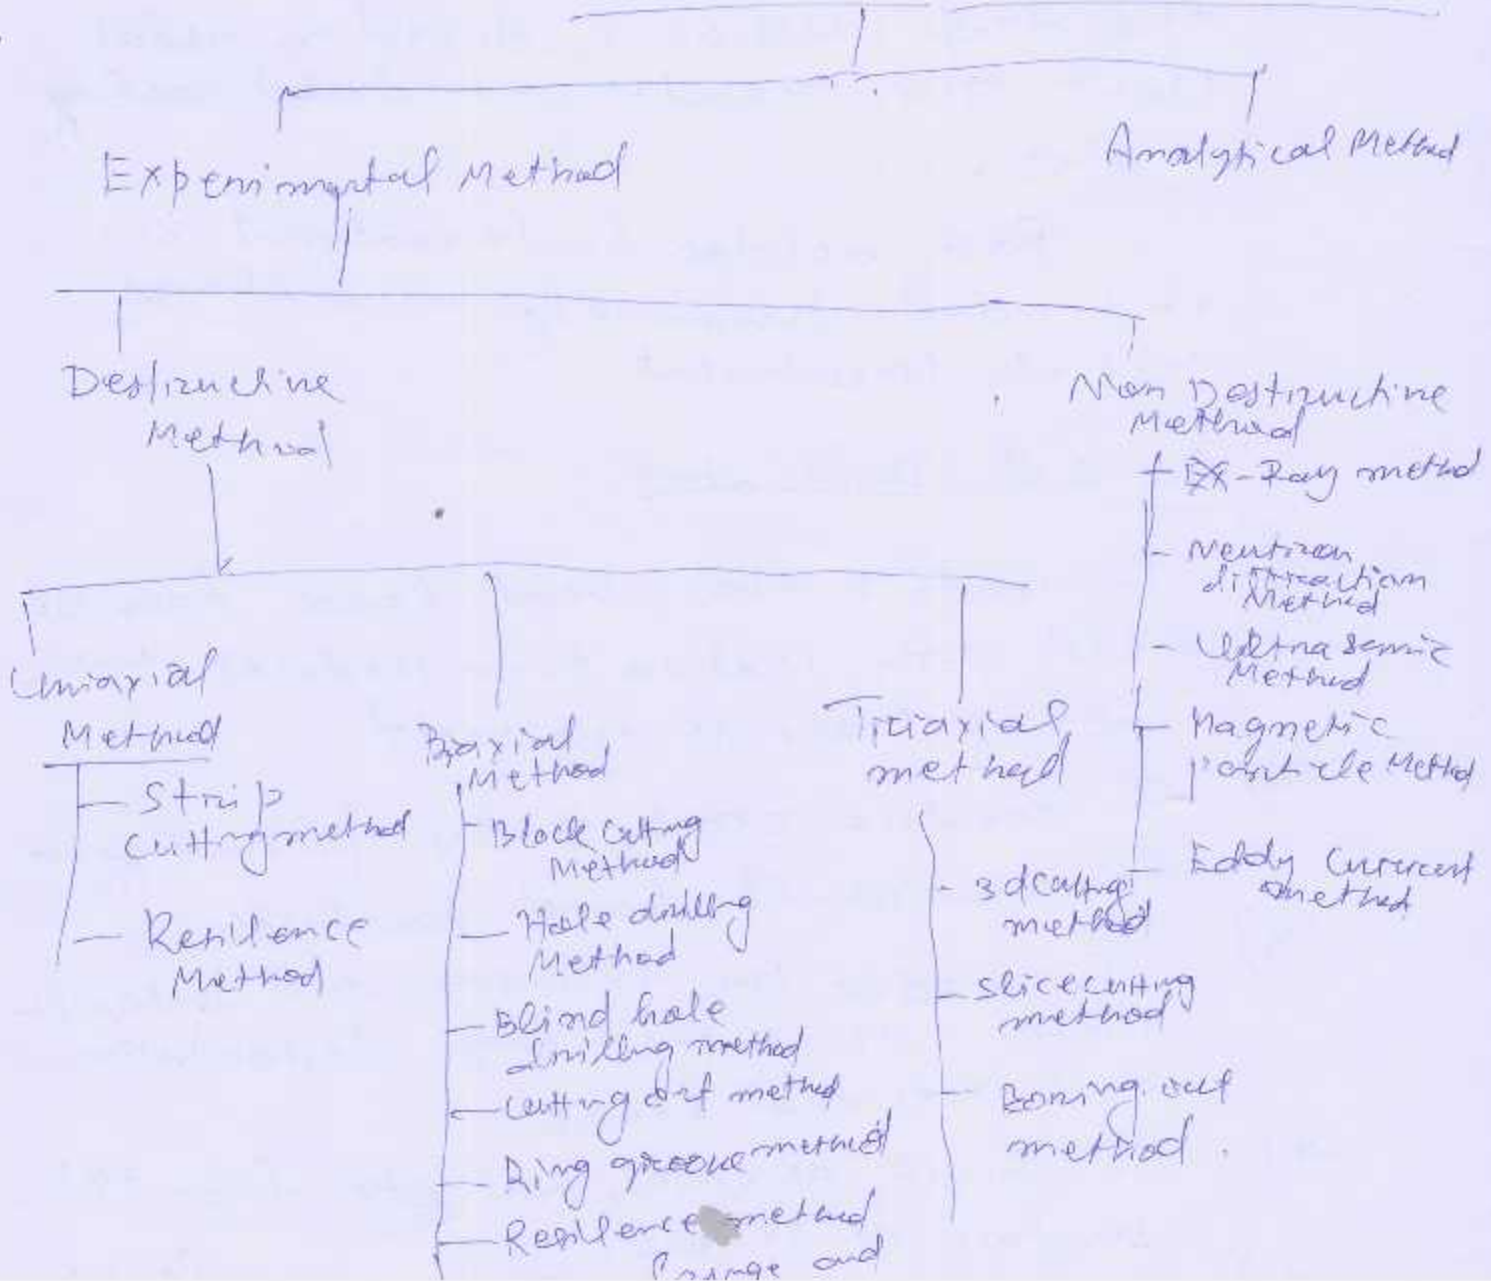 Experimental Method
Analytical Method
Destructive
Method
Non Destructive
Method
X-Ray method
Neutron
diffraction
Method
Ultrasonic
Method
Magnetic
particle Method
Eddy Current
method
Uniaxial
Method
Strip
Cutting method
Resilence
Method
Biaxial
Method
Block Cutting
Method
Hole drilling
Method
Blind hole
drilling method
Cutting out method
Ring groove method
Resilence method
and
Triaxial
method
3d cutting
method
slice cutting
method
Boring out
method.